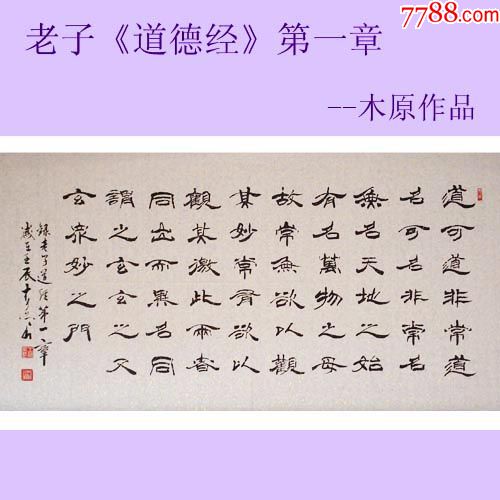 7788.com
老子《道德经》第一章
--木原作品
道可道非常道
名可名非常名
無名天地之始
有名萬物之母
故常無欲以觀
其妙常有欲以
觀其徼此兩者
同出而異名同
謂之玄玄之又
玄眾妙之門
錄老子道經第一章
歲在壬辰